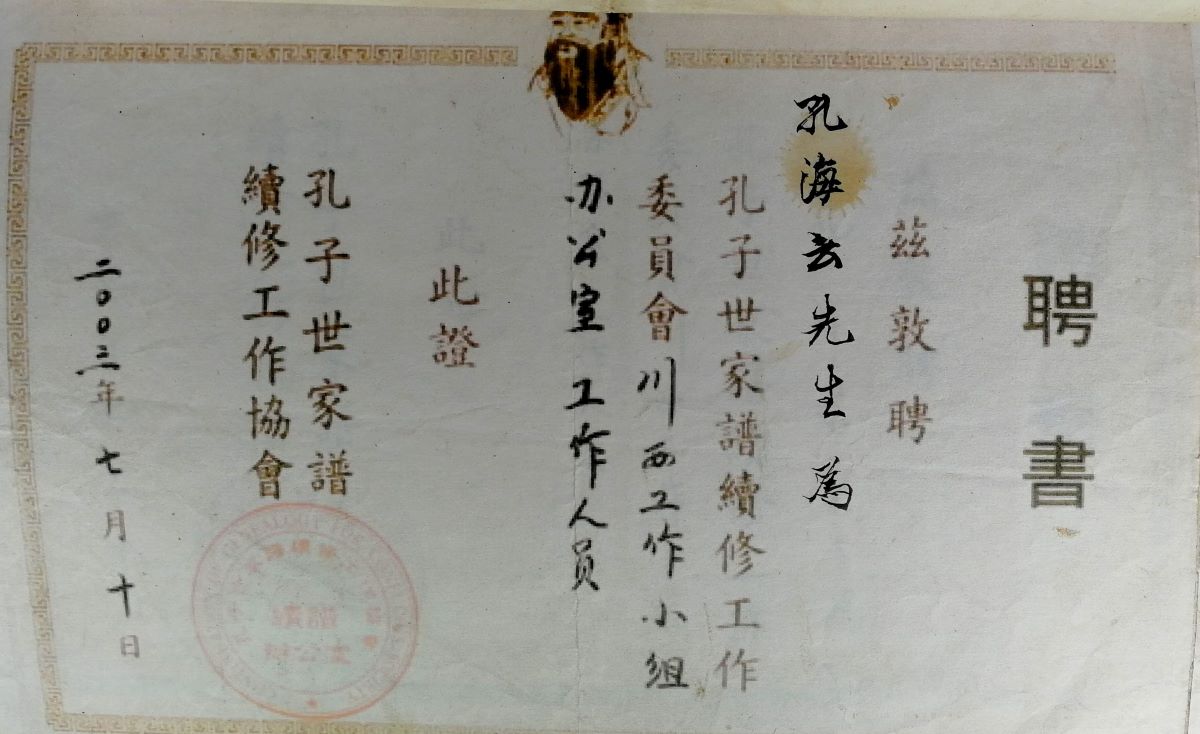 聘書
茲敦聘
孔海云先生為
孔子世家譜續修工作
委員會川西工作小组
办公室 工作人员
此證
孔子世家譜
續修工作協會
二00三年七月十日
續譜
辦公室